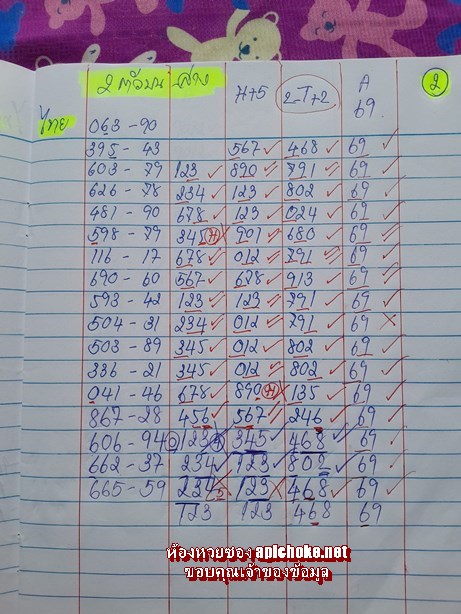 2 ตัวบน ล่าง H+5 2-T+2 A 69 2
ไทย 063-90
395-43 567 468 69
603-79 123 890 791 69
626-78 234 123 802 69
481-90 678 123 024 69
598-79 345 H 901 680 69
116-17 678 012 791 69
690-60 567 678 913 69
593-42 123 123 791 69
504-31 234 012 791 69
503-89 345 012 802 69
336-21 345 012 802 69
041-46 678 890 H 135 69
867-28 456 567 246 69
606-94 123 345 468 69
662-37 234 123 802 69
665-59 234 123 468 69
123 123 468 69
ห้องหวยซอง apichoke.net
ขอบคุณเจ้าของข้อมูล